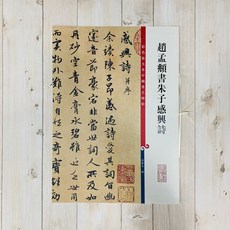 趙孟頫書朱子感興詩
感興詩 并序
余讀陳子昂感遇詩愛其詞旨幽
邃音節豪宕非當世詞人所及如
丹砂空青金膏水碧雖近乏世用
而實物外難得自然之奇寶